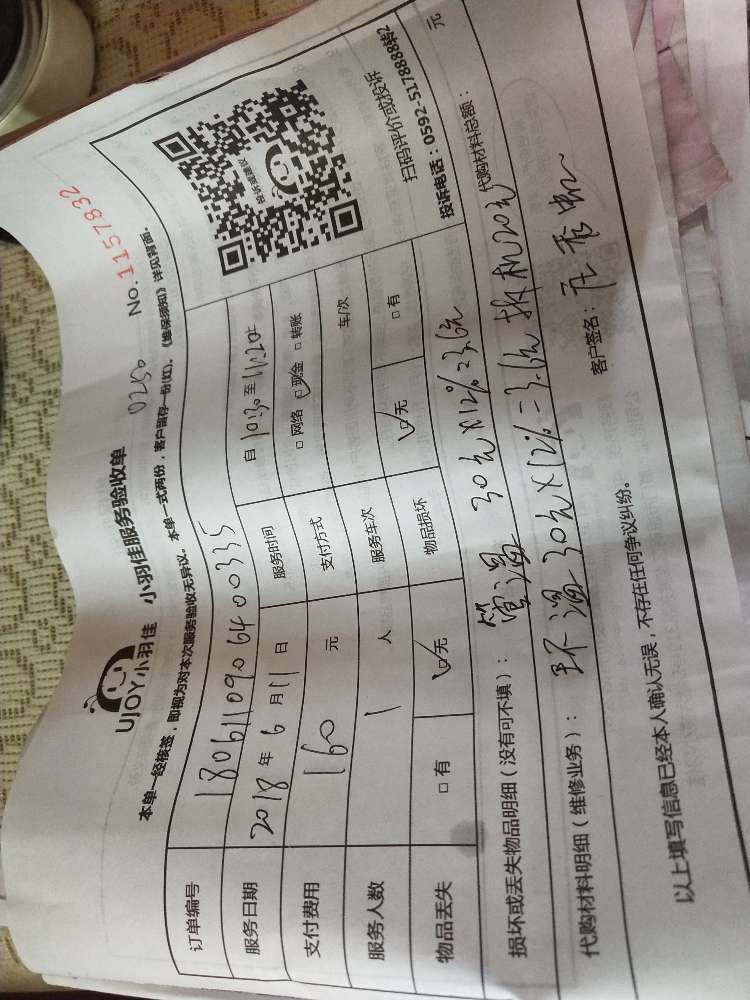 UJOY小羽佳 小羽佳服务验收单
0250 No.1157832
本单一经核签，即视为对本次服务验收无异议。本单一式两份，客户留存一份(红)。《维保须知》详见背面。
订单编号 180611090640 0335
服务日期 2018年6月11日 服务时间 自10:30至11:20止
支付费用 160元 支付方式 □网络 ☑现金 □转账
服务人数 1人 服务车次 车/次
物品丢失 □有 ☑无 物品损坏 ☑无 □有
投诉或建议
扫码评价或投诉
投诉电话：0592-5178888转2
损坏或丢失物品明细（没有可不填）： 30元×12%=3.6元
代购材料总额： 元
代购材料明细（维修业务）： 30元×12%=3.6元 拆机20元
以上填写信息已经本人确认无误，不存在任何争议纠纷。
客户签名：